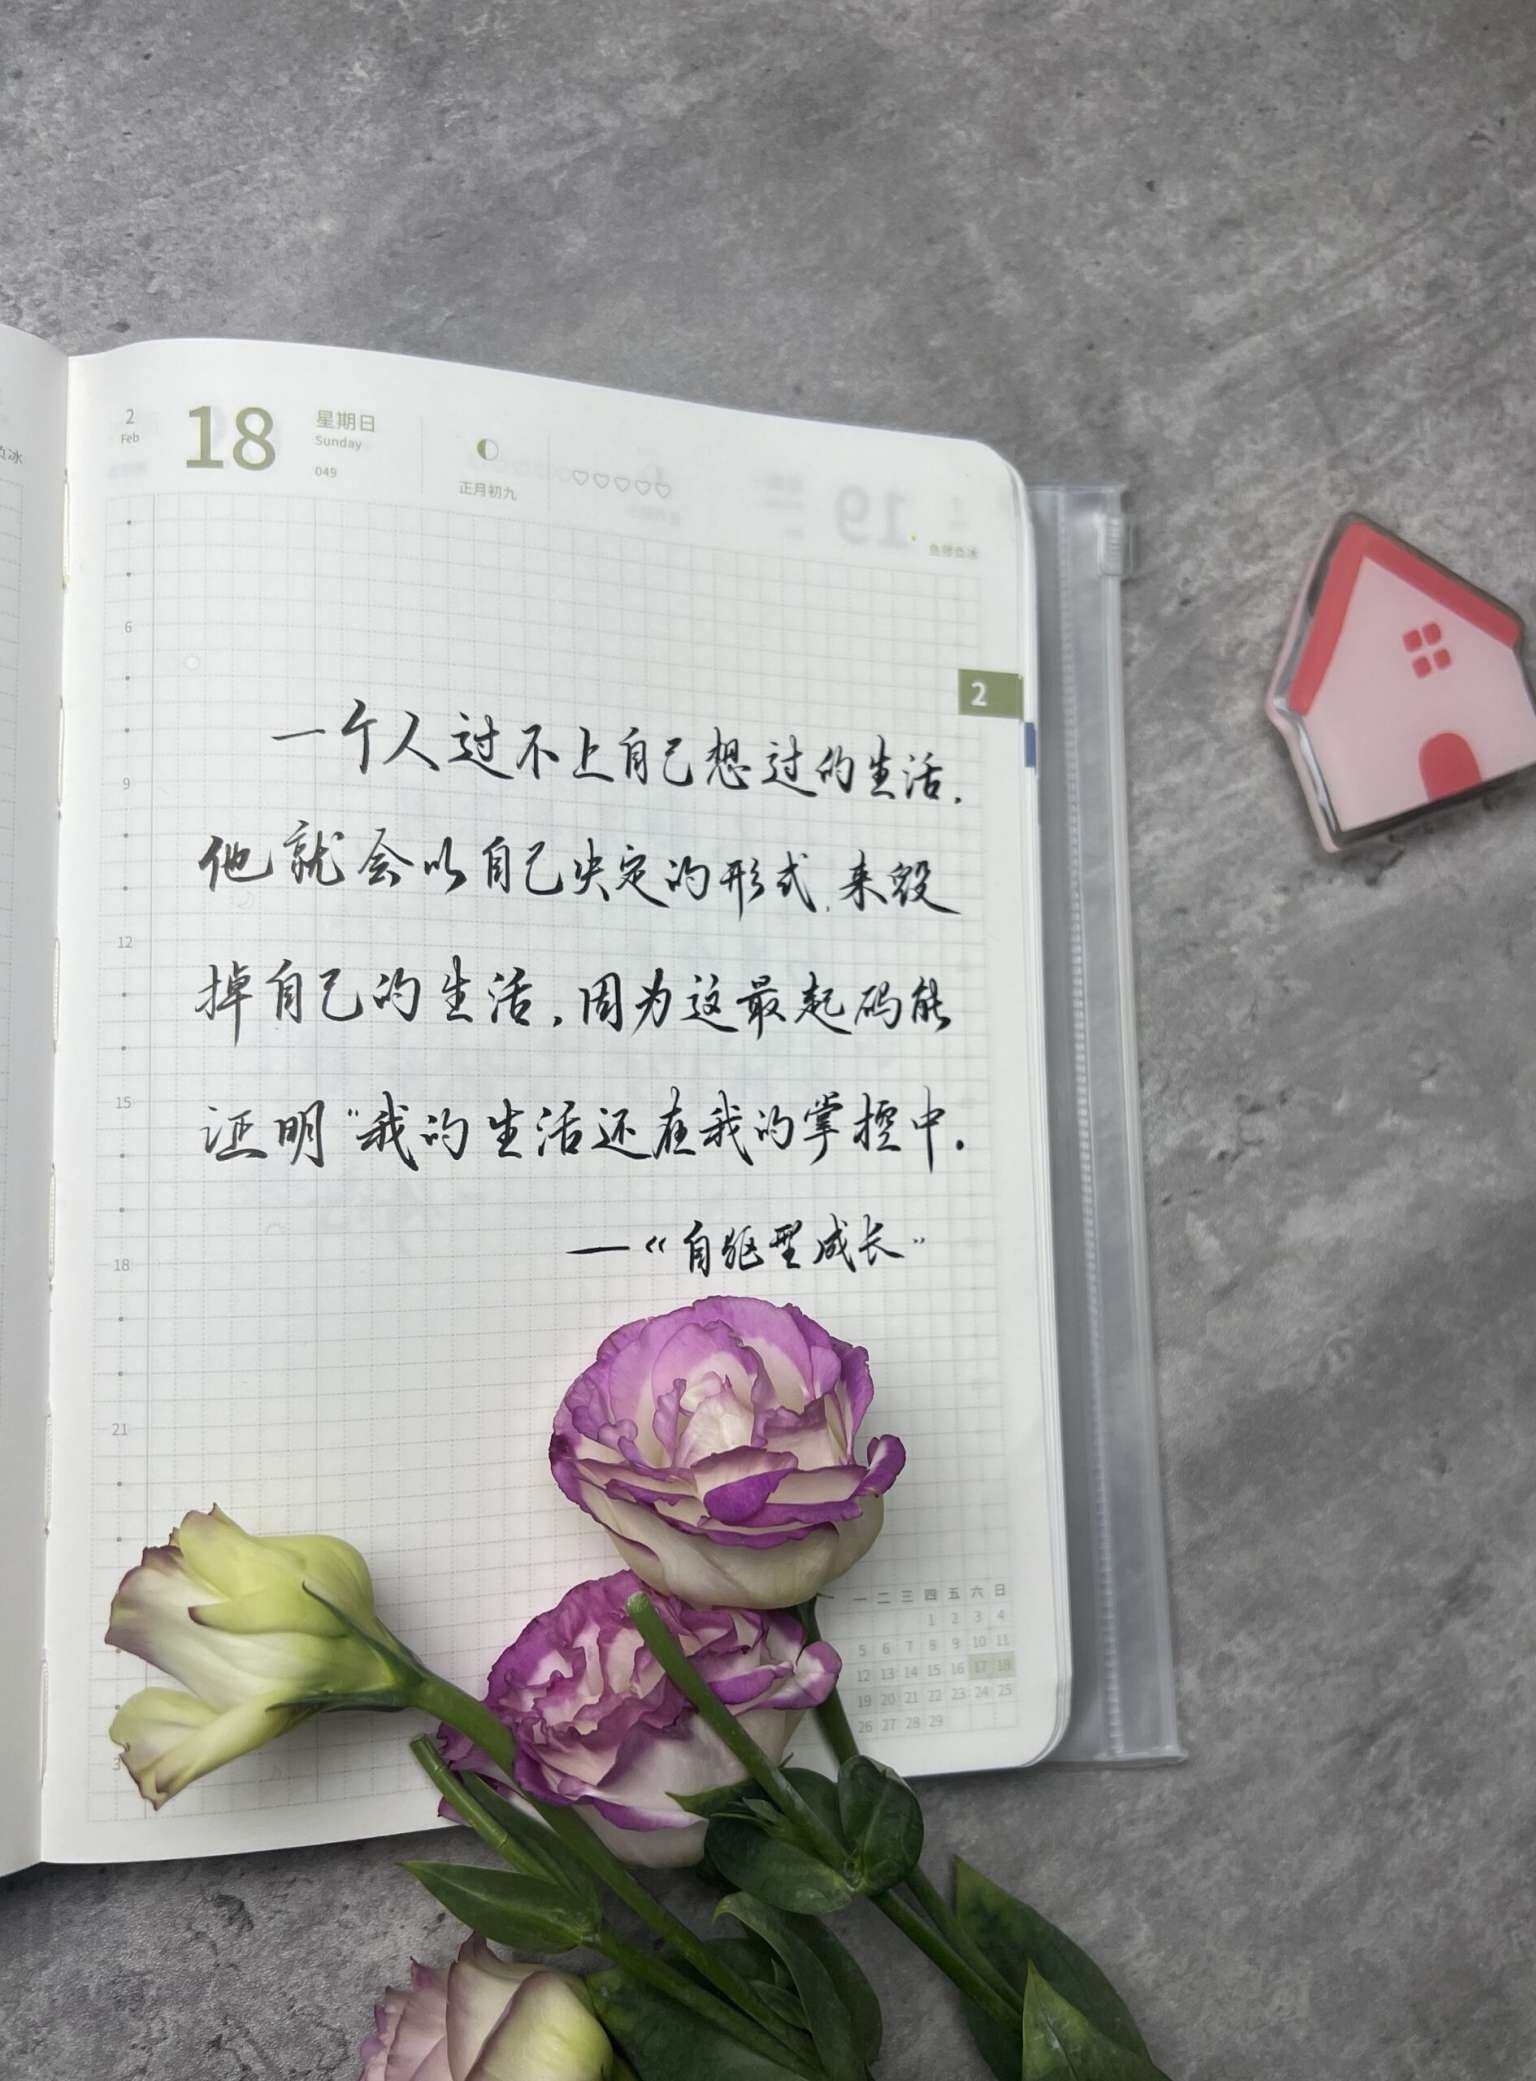 2
Feb
18
星期日
Sunday
049
正月初九
鱼陟负冰
19
负冰
2
6
9
12
15
18
21
一个人过不上自己想过的生活，
他就会以自己决定的形式，来毁
掉自己的生活，因为这最起码能
证明“我的生活还在我的掌控中。
—《自驱型成长”
一 二 三 四 五 六 日
1 2 3 4
5 6 7 8 9 10 11
12 13 14 15 16 17 18
19 20 21 22 23 24 25
26 27 28 29
3